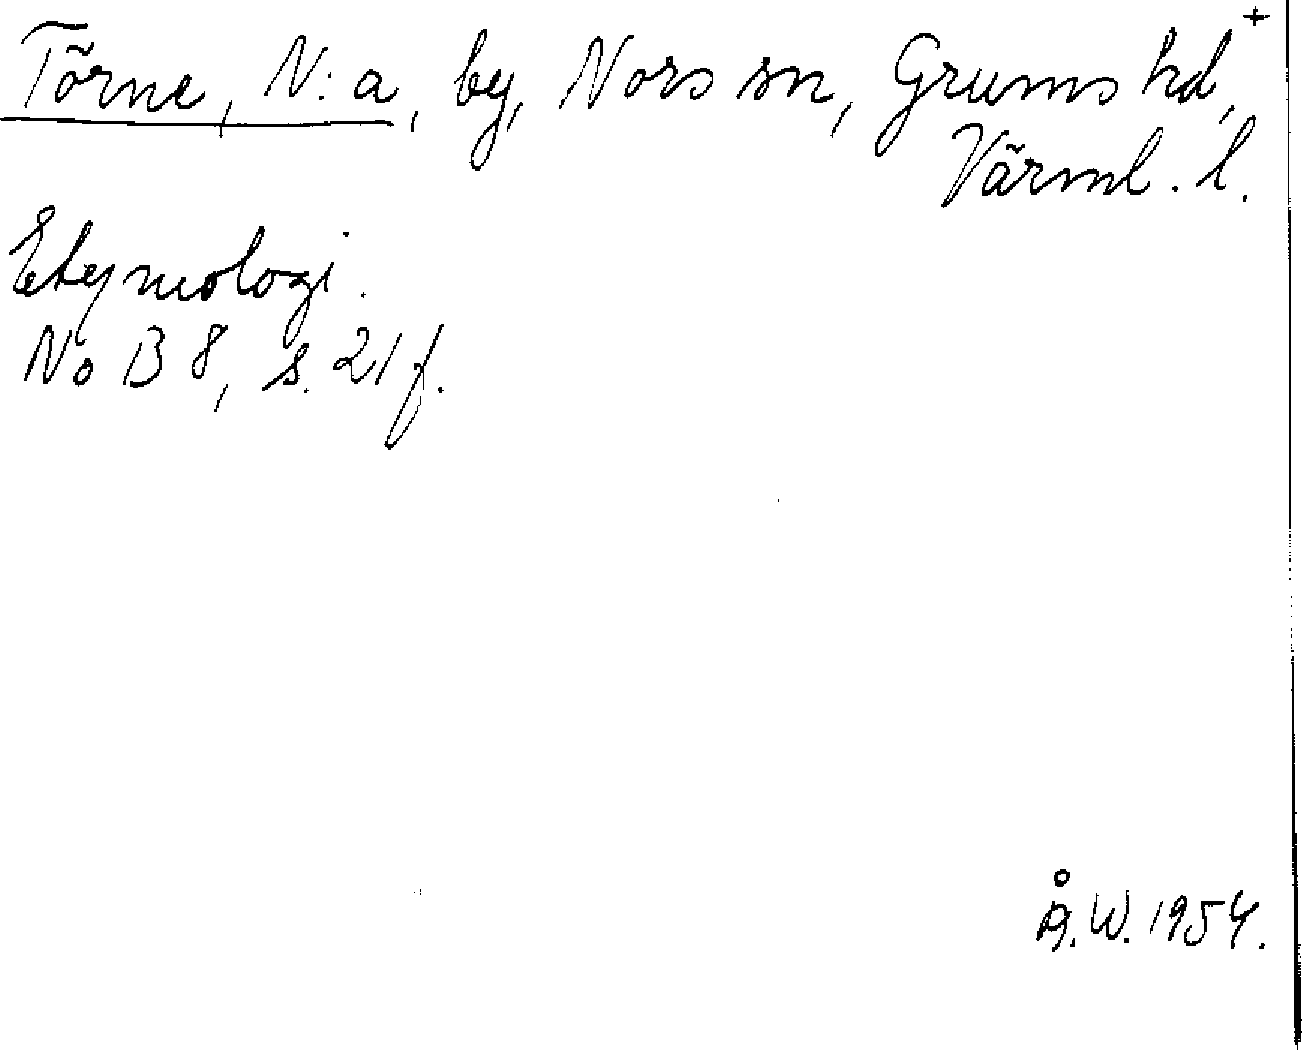 +
Törne, N:a, by, Nors sn, Grums hd,
Värml. l.
Etymologi.
NoB 8, s. 21 f.
Å.W. 1954.